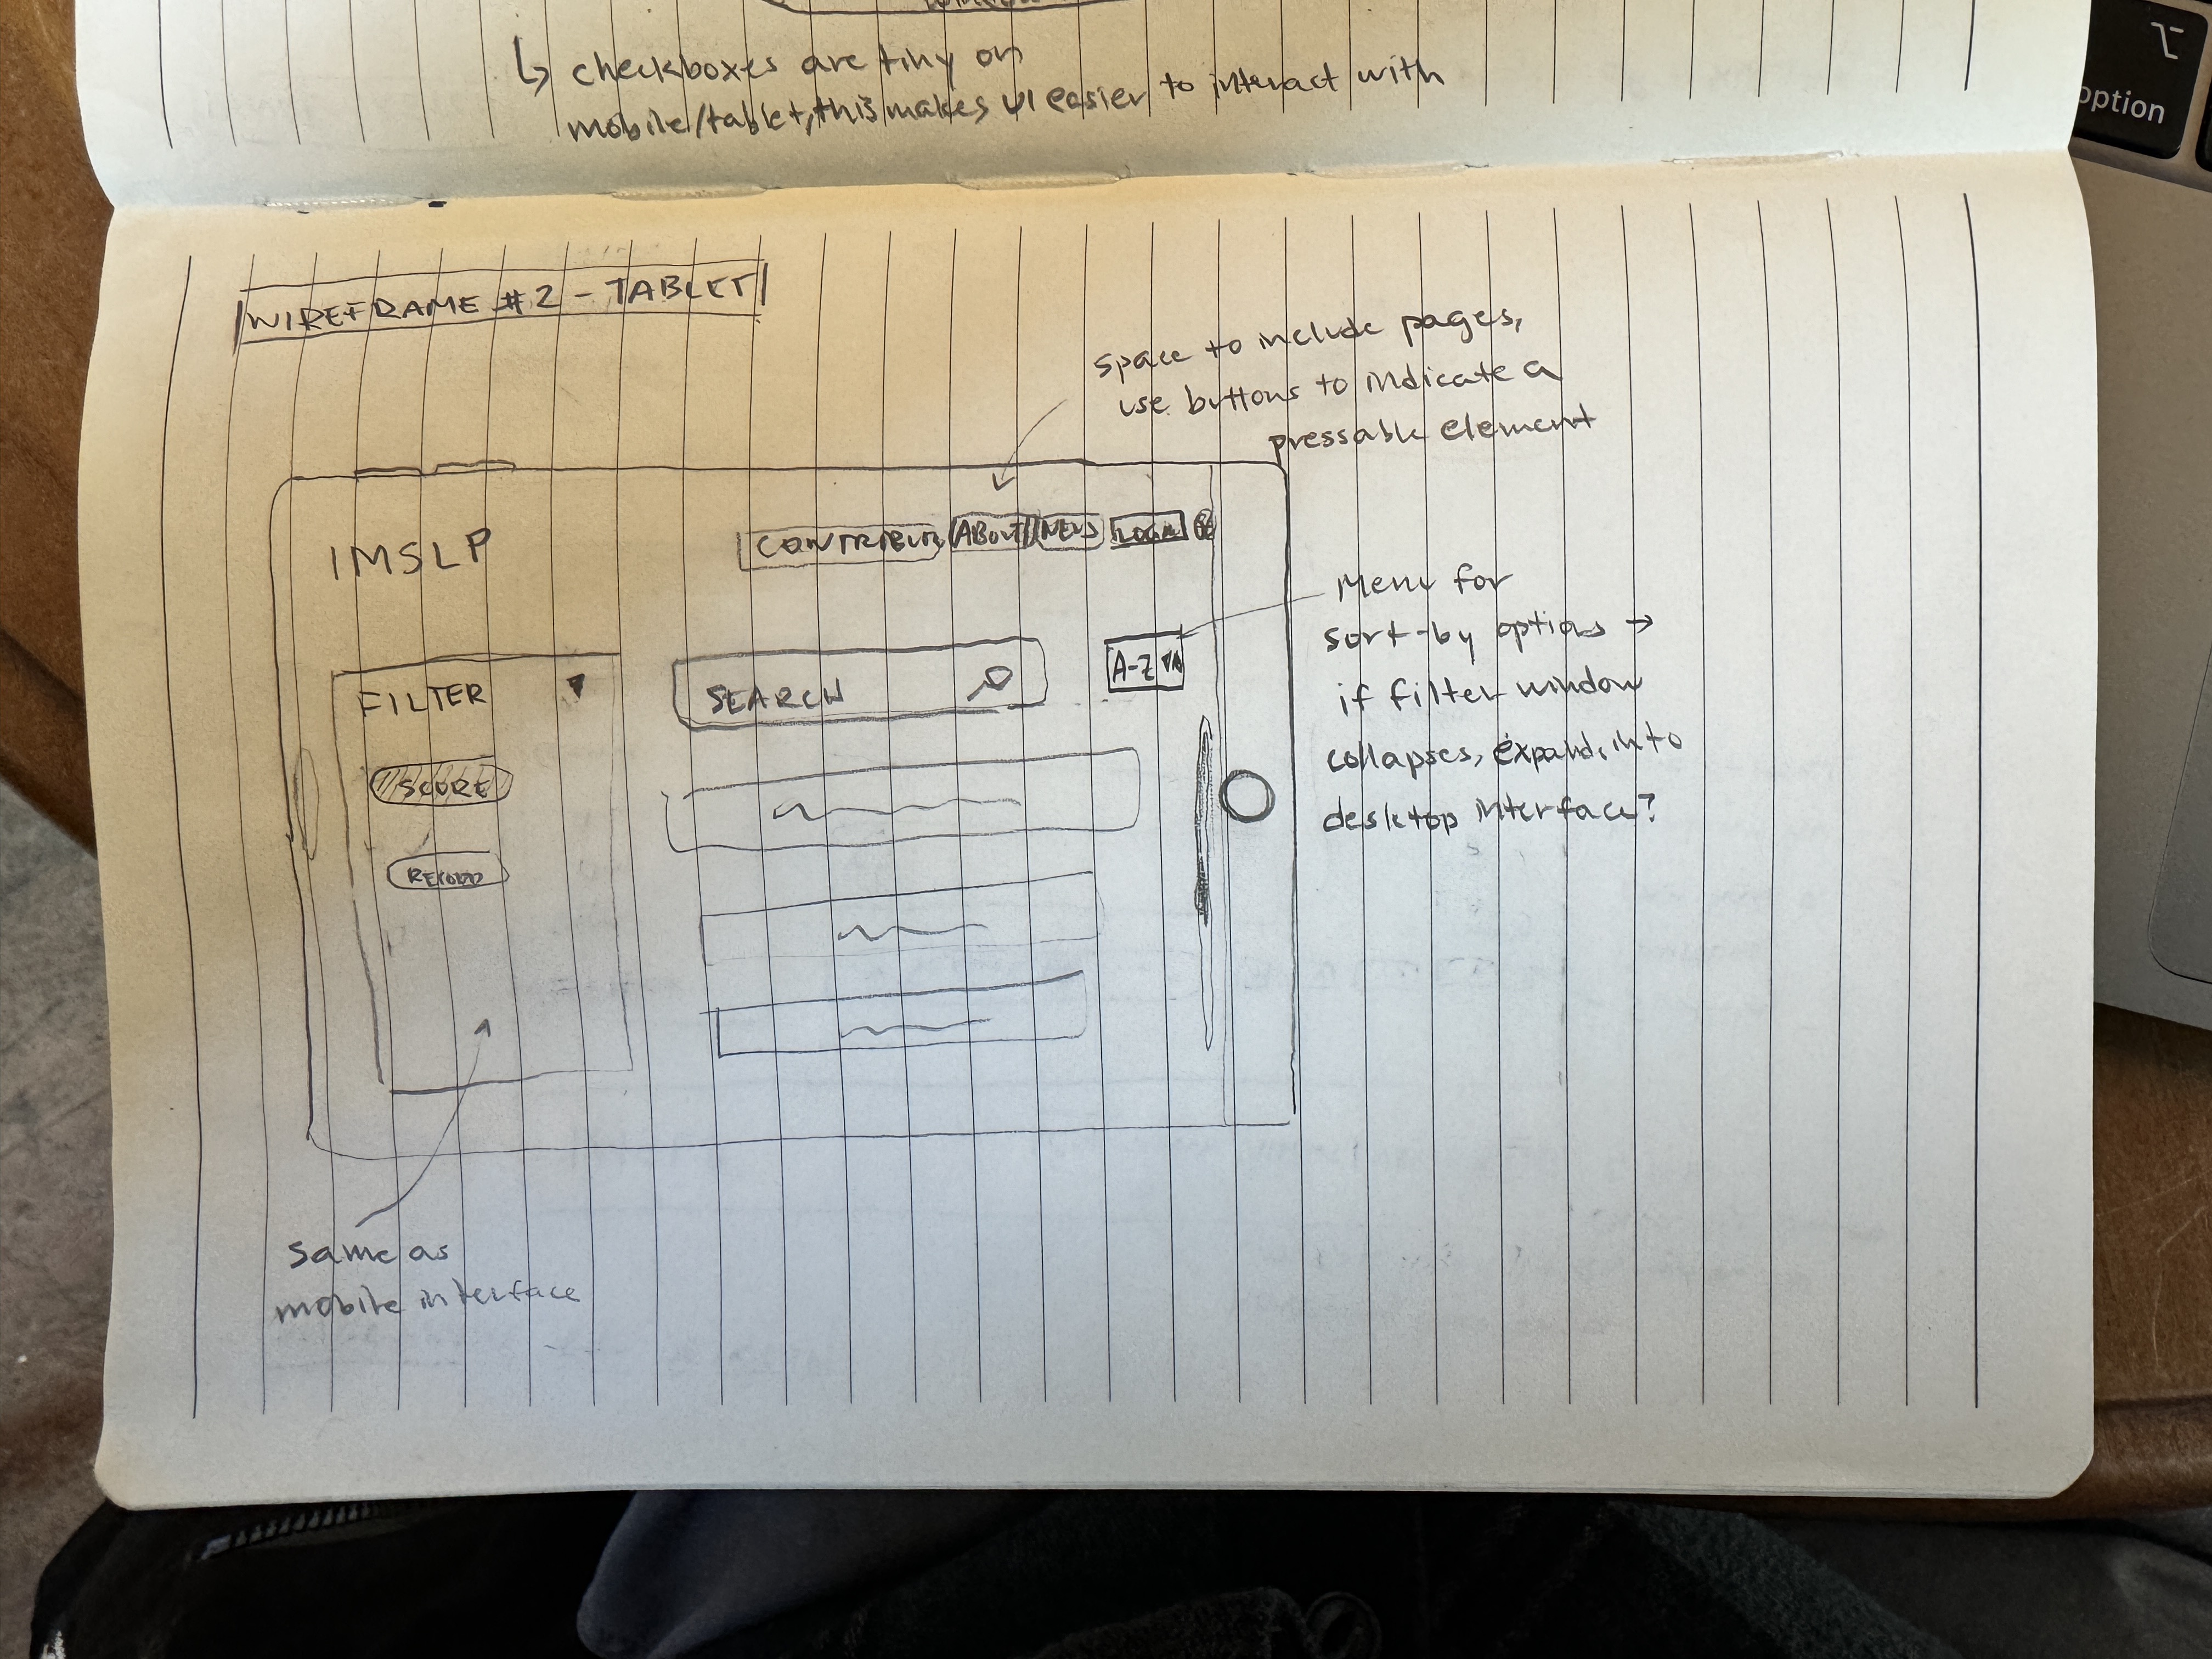 ↳ checkboxes are tiny on
mobile/tablet, this makes UI easier to interact with
WIREFRAME #2 - TABLET
space to include pages,
use buttons to indicate a
pressable element
IMSLP
CONTRIBUTE
ABOUT
NEWS
LOGIN
Menu for
sort-by options →
if filter window
collapses, expand into
desktop interface?
FILTER
SEARCH
A-Z
SCORE
RECORD
same as
mobile interface
option